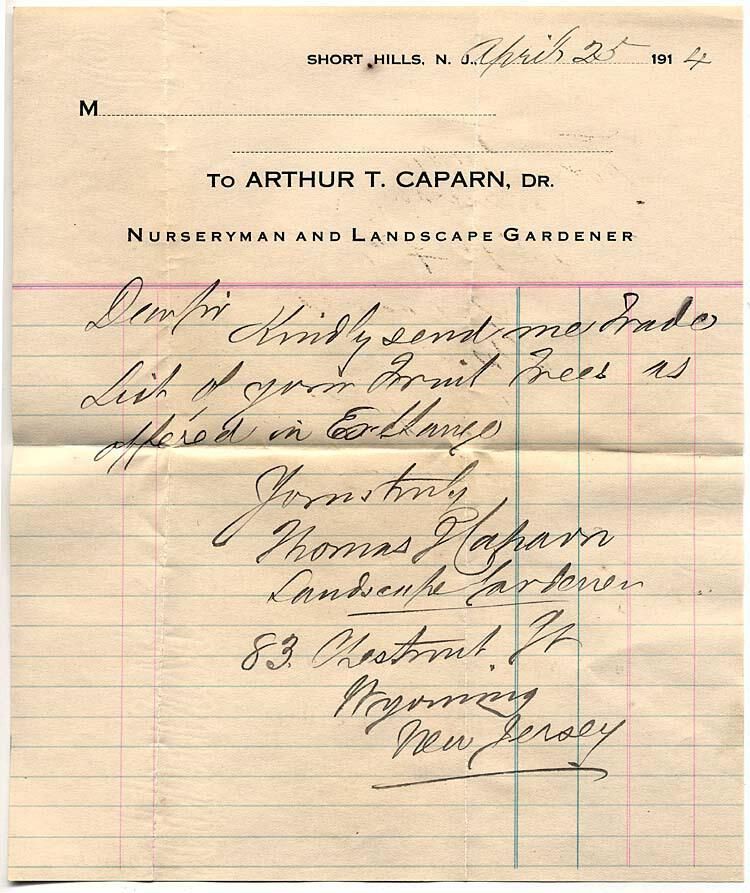 SHORT HILLS, N. J., April 25 1914
M
TO ARTHUR T. CAPARN, DR.
NURSERYMAN AND LANDSCAPE GARDENER
Dear Sir
Kindly send me Trade
List of your Fruit Trees as
offered in Exchange
Yours truly
Thomas J Caparn
Landscape Gardener
83. Chestnut St
Wyoming
New Jersey